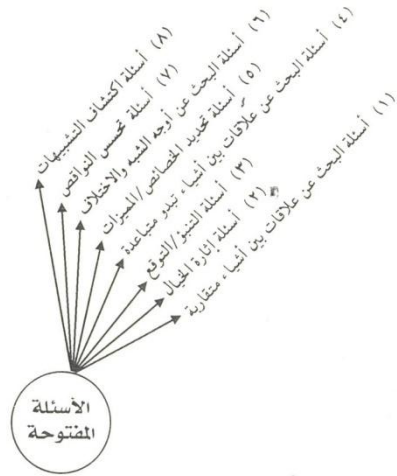 (٨) أسئلة اكتشاف التشبيهات
(٧) أسئلة تحسس النواقص
(٦) أسئلة البحث عن أوجه الشبه والاختلاف
(٥) أسئلة تحديد الخصائص/المميزات
(٤) أسئلة البحث عن علاقات بين أشياء تبدو متباعدة
(٣) أسئلة التنبؤ/التوقع
(٢) أسئلة إثارة الخيال
(١) أسئلة البحث عن علاقات بين أشياء متقاربة
الأسئلة
المفتوحة